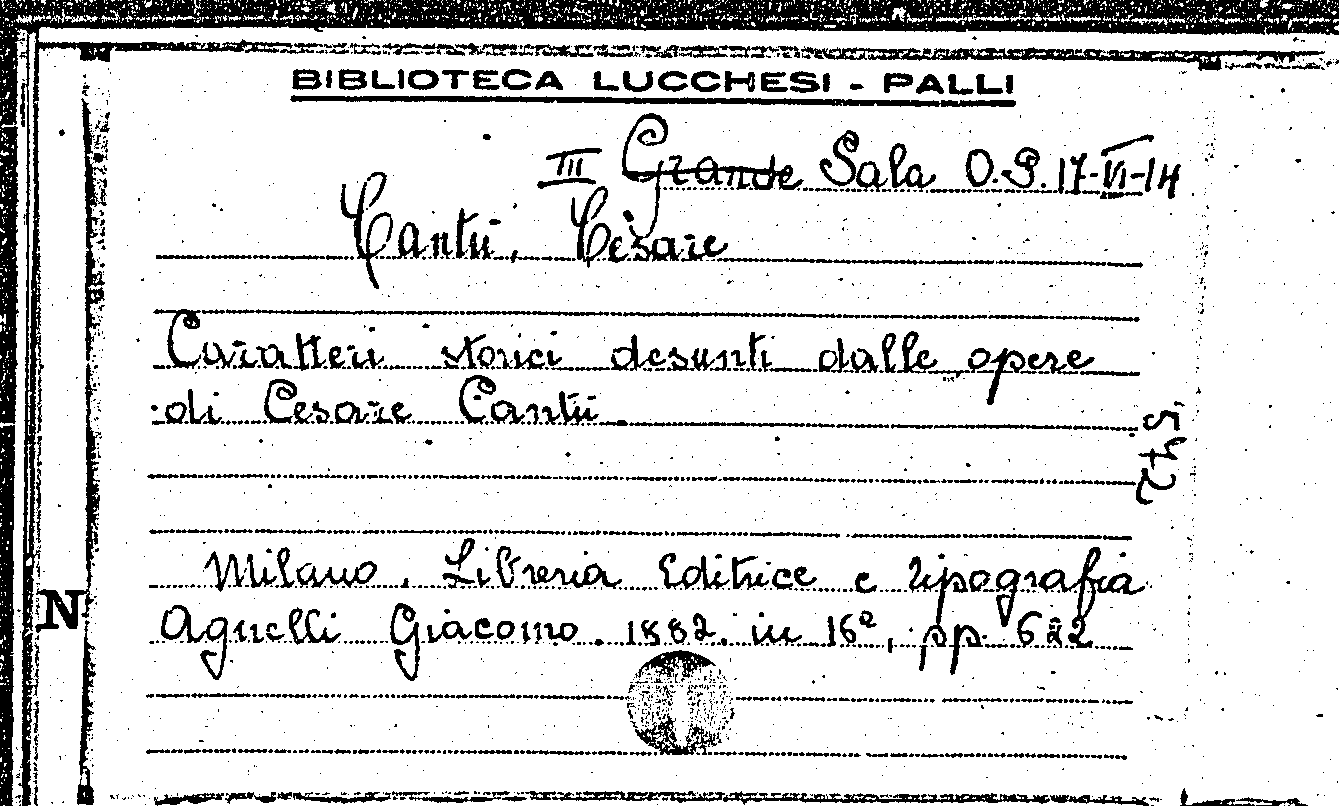 BIBLIOTECA LUCCHESI - PALLI
III Grande Sala O.P. 17-VI-14
Cantù, Cesare
Caratteri storici desunti dalle opere
di Cesare Cantù
542
Milano. Libreria Editrice e tipografia
Agnelli Giacomo. 1882. in 16º, pp.
N